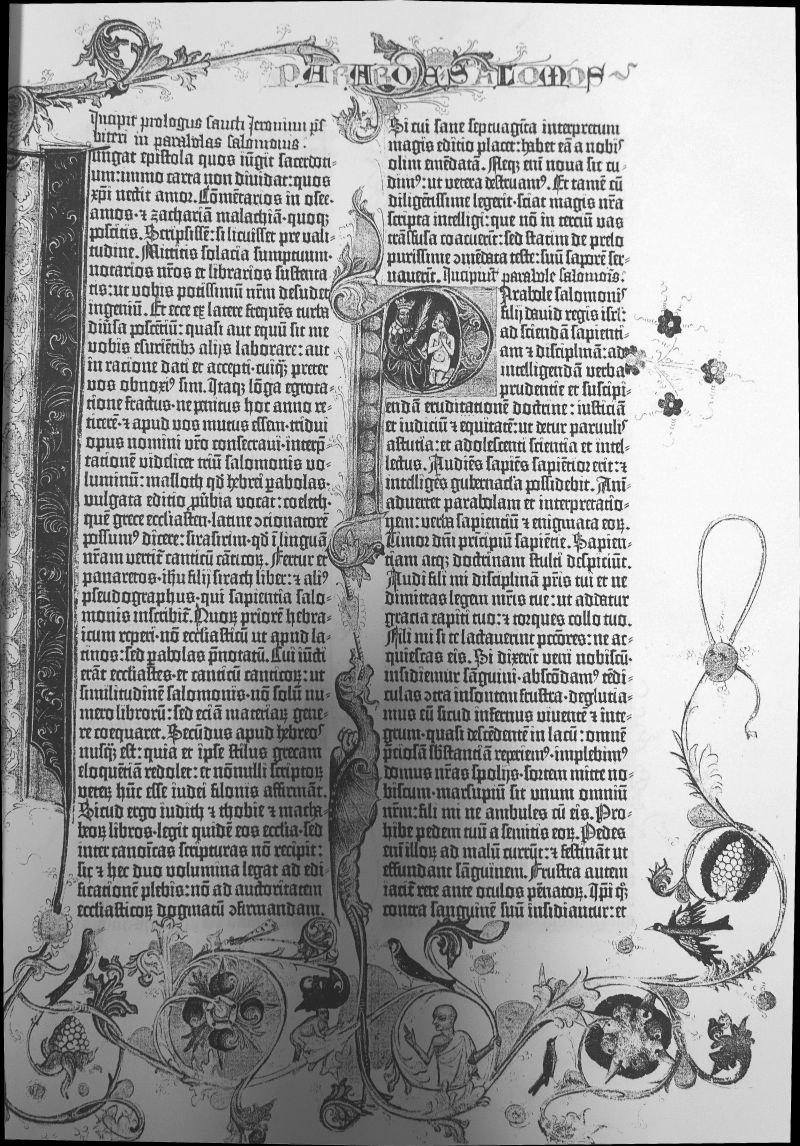 PARABOLE SALOMOS
Incipit prologus sancti Jeronimi p̄s
biteri in parabolas salomonis.
Iungat epistola quos iūgit sacerdoti-
um: immo carta non diuidat: quos
xp̄i nectit amor. Cōmētarios in osee.
amos. ⁊ zachariā malachiā. quoqꝫ
poscitis. Scripsissē: si licuisset pre vali-
tudine. Mittitis solacia sumptuum.
notarios nr̄os et librarios sustenta-
tis: ut vobis potissimū nr̄m desudet
ingeniū. Et ecce ex latere frequēs turba
diūsa poscētiū: quasi aut equū sit me
vobis esuriētibꝫ alijs laborare: aut
in racione dati et accepti. cuiq̄ꝫ preter
vos obnoxiꝰ sim. Itaqꝫ lōga egrota-
tione fractus. ne penitus hoc anno re-
ticerē. ⁊ apud vos mutus essem. tridui
opus nomini vr̄o consecraui. interp̄-
tationē videlicet triū salomonis vo-
luminū: masloth qd̄ hebrei pabolas.
vulgata editio pūbia vocat: coeleth.
quē grece ecclesiasten. latine ↄcionatorē
possumꝰ dicere: sirasirim. qd̄ ī linguā
nr̄am vertit̄ canticū cāticoꝝ. Fertur et
panaretos. ihū filij sirach liber: ⁊ aliꝰ
pseudographus. qui sapientia salo-
monis inscribit̄. Quoꝝ priorē hebra-
icum reperi. nō ecclesiasticū ut apud la-
tinos: sed pabolas p̄notatū. Cui iūcti
erāt ecclesiastes. et canticū canticoꝝ: ut
similitudinē salomonis. nō solū nu-
mero librorū: sed eciā materiaꝝ gene-
re coequaret. Secūdus apud hebreos
nusq̄ꝫ est: quia et ipse stilus grecam
eloquētiā redolet: et nōnulli scriptoꝝ
veteꝝ hūc esse iudei filonis affirmāt.
Sicud ergo iudith ⁊ thobie ⁊ macha-
beoꝝ libros. legit quidē eos ecclesia. sed
inter canoīcas scripturas nō recipit:
sic ⁊ hec duo volumina legat ad edi-
ficationē plebis: nō ad auctoritatem
ecclesiasticoꝝ dogmatū ↄfirmandam.
Si cui sane septuagīta interpretum
magis editio placet: habet eā a nobis
olim emēdatā. Neqꝫ enī noua sic cu-
dimꝰ: ut vetera destruamꝰ. Et tamē cū
diligētissime legerit. sciat magis nr̄a
scripta intelligi: que nō in terciū vas
trāsfusa coacuerit: sed statim de prelo
purissime ↄmēdata teste: suū saporē ser-
uauerīt. Incipiūt parabole salomōis.
Parabole salomonis
filij dauid regis isrl̄:
ad sciendā sapienti-
am ⁊ disciplinā: ad
intelligendā verba
prudentie et suscipi-
endā eruditationē doctrine: iusticiā
et iudiciū ⁊ equitatē: ut detur paruulis
astutia: et adolescenti scientia et intel-
lectus. Audiēs sapiēs sapiētior erit: ⁊
intelligēs gubernacla possidebit. Ani-
aduertet parabolam et interpretatio-
nem: verba sapientiū ⁊ enigmata eoꝝ.
Timor dn̄i principiū sapiētie. Sapien-
tiam atqꝫ doctrinam stulti despiciūt.
Audi fili mi disciplinā pr̄is tui et ne
dimittas legem mr̄is tue: ut addatur
gracia capiti tuo: ⁊ torques collo tuo.
Fili mi si te lactauerint pctōres: ne ac-
quiescas eis. Si dixerīt veni nobiscū.
insidiemur sāguini. abscōdamꝰ tēdi-
culas ↄtra insontem frustra. deglutia-
mus eū sicud infernus viuentē ⁊ inte-
grum. quasi descēdentē in lacū: omnē
p̄ciosā sbstantiā reperiemꝰ. implebimꝰ
domus nr̄as spolijs. sortem mitte no-
biscum. marsupiū sit vnum omniū
nr̄m: fili mi ne ambules cū eis. Pro-
hibe pedem tuū a semitis eoꝝ. Pedes
enī illoꝝ ad malū currūt: ⁊ festināt ut
effundant sāguinem. Frustra autem
iacit̄ rete ante oculos pēnatoꝝ. Ip̄i q̄ꝫ
contra sanguinē suū insidiantur: et